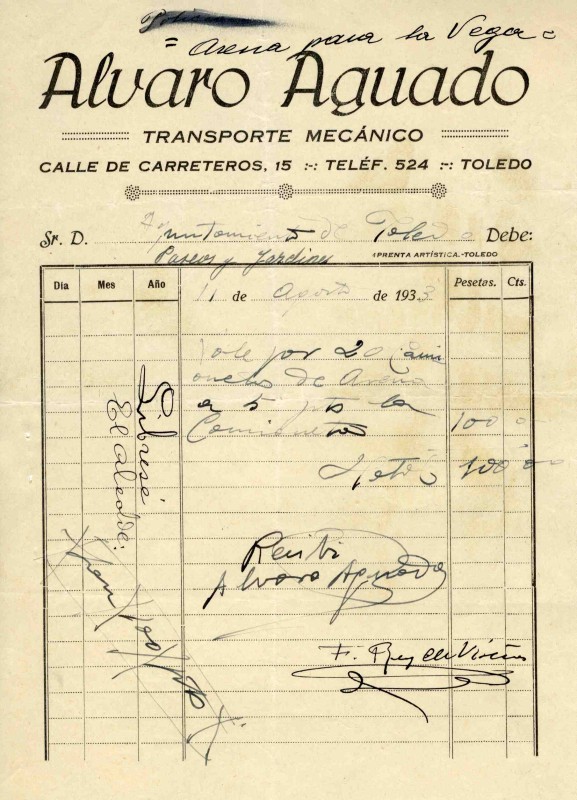 = Arena para la Vega =
Alvaro Aguado
TRANSPORTE MECÁNICO
CALLE DE CARRETEROS, 15 :-: TELÉF. 524 :-: TOLEDO
Sr. D. Ayuntamiento de Toledo Debe:
Paseos y Jardines
IMPRENTA ARTÍSTICA.-TOLEDO
Dia Mes Año 11 de Agosto de 1933 Pesetas. Cts.
Vale por 20 Cami
onetas de Arena
a 5 pts la
Camioneta 100 0
100 00
Librese
El alcalde:
Recibi
Alvaro Aguado